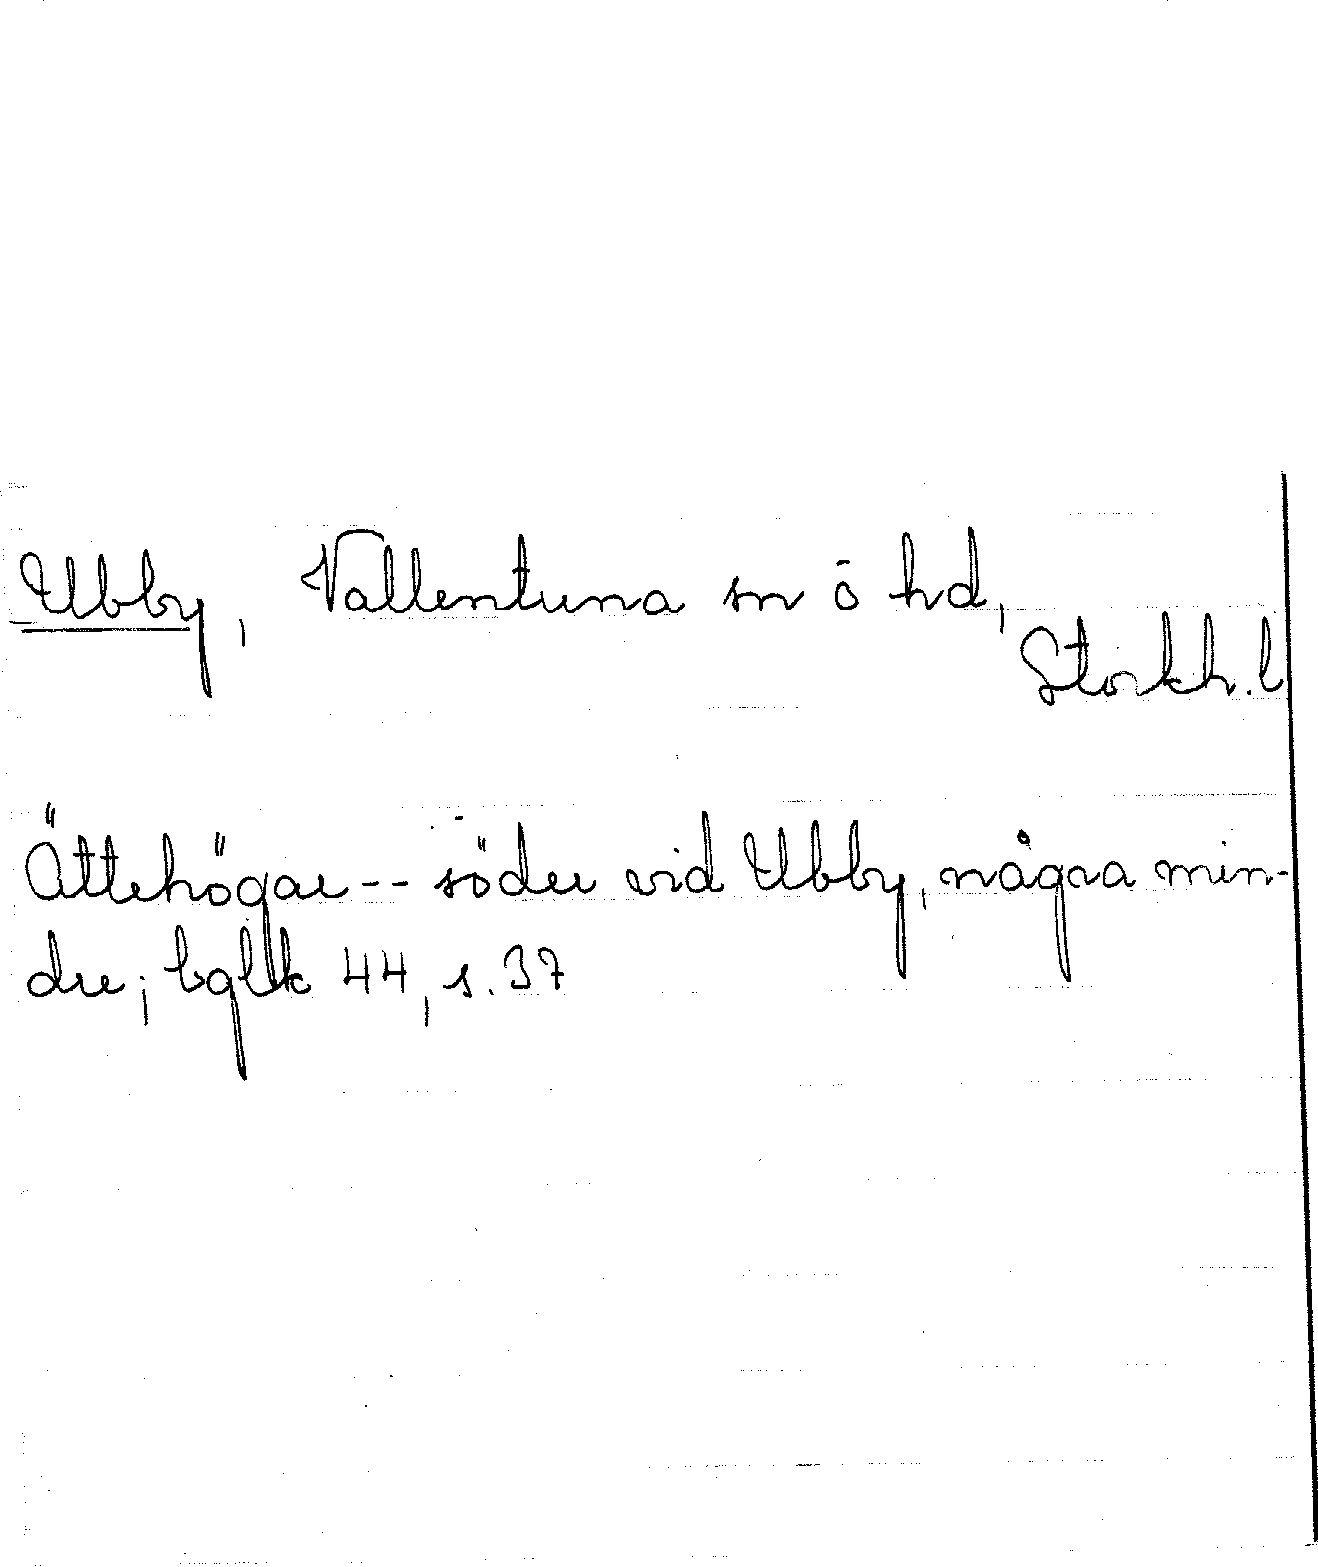 Ubby, Vallentuna sn o hd,
Stockh. l
Ättehögar -- söder vid Ubby, några min-
dre; bglk 44, s. 37